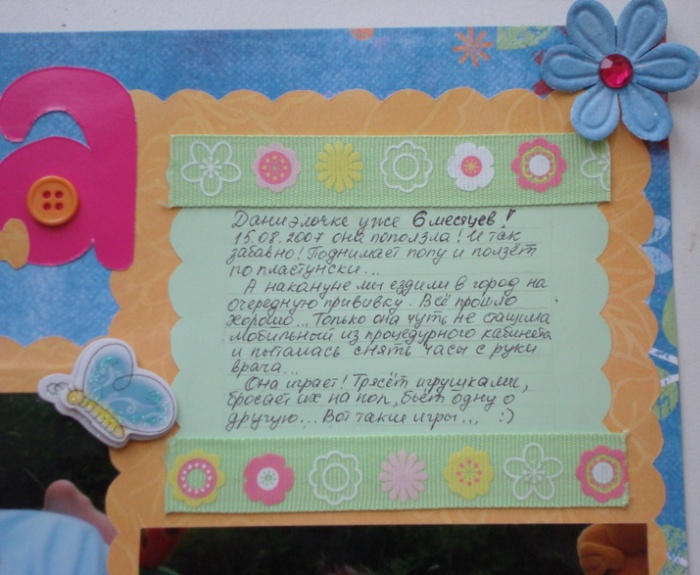 a
Даниэлочке уже 6 месяцев!
15.08.2007 она поползла! И так
забавно! Поднимает попу и ползёт
по пластунски...
А накануне мы ездили в город на
очередную прививку. Всё прошло
хорошо... Только она чуть не стащила
мобильный из процедурного кабинета
и пыталась снять часы с руки
врача...
Она играет! Трясёт игрушками,
бросает их на пол, бьёт одну о
другую... Вот такие игры... :)